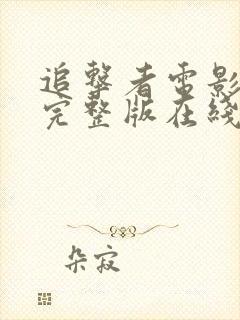 追擊者電影
完整版在綫
朵寂